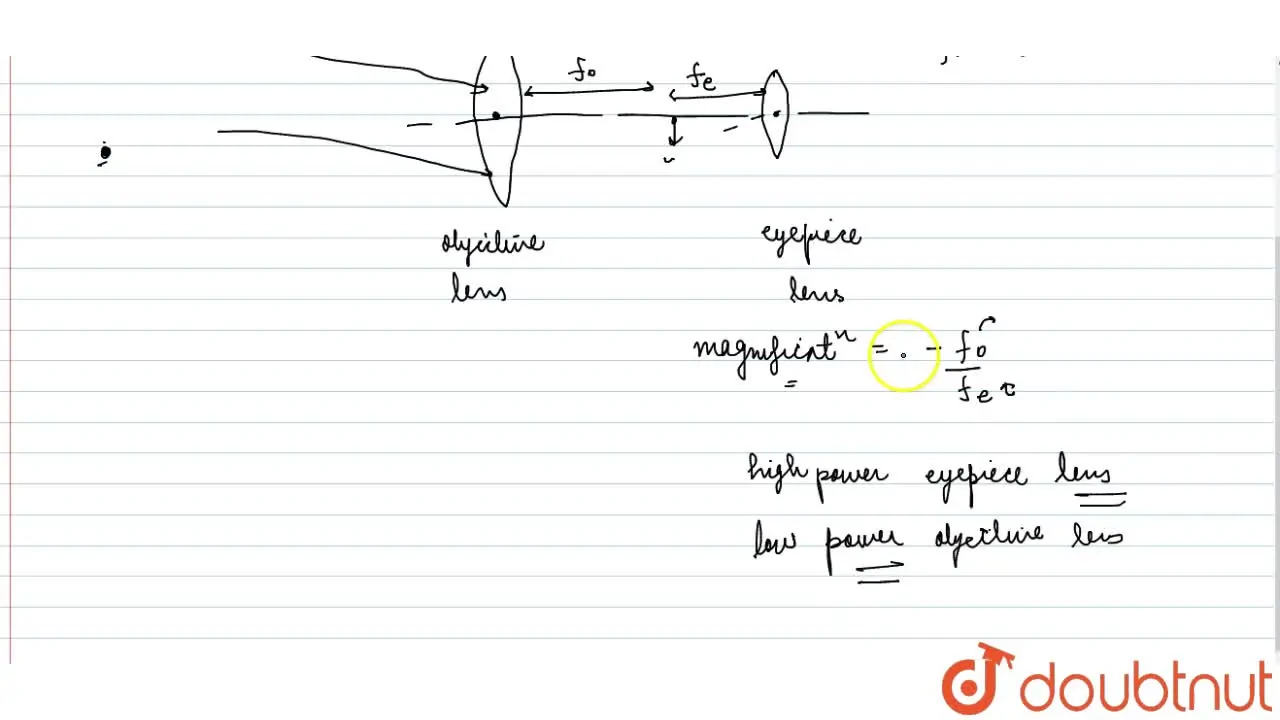 fo fe
objective eyepiece
lens lens
magnificatⁿ = - fo
fe
high power eyepiece lens
low power objective lens
doubtnut